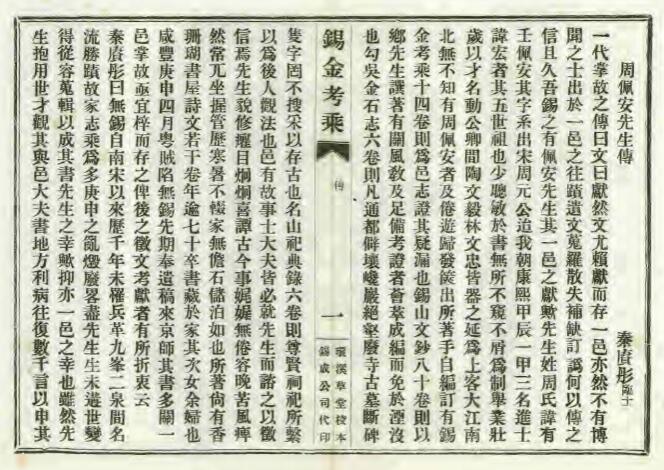 周佩安先生傳
秦賡彤臨士
一代掌故之傳曰文曰獻然文尤賴獻而存一邑亦然不有博
聞之士出於一邑之往蹟遺文蒐羅散失補缺訂譌何以傳之
信且久吾錫之有佩安先生其一邑之獻歟先生姓周氏諱有
壬佩安其字系出宋周元公追我朝康熙甲辰一甲三名進士
諱宏者其五世祖也少聰敏於書無所不窺不屑爲制舉業壯
歲以才名動公卿間陶文毅林文忠皆器之延爲上客大江南
北無不知有周佩安者及倦遊歸發篋出所著手自編訂有錫
金考乘十四卷則爲邑志證其疑漏也錫山文鈔八十卷則以
鄉先生譔著有關風敎及足備考證者薈萃成編而免於湮沒
也勾吳金石志六卷則凡通都僻壤巉巖絕壑廢寺古墓斷碑
錫金考乘
傳
一
環溪草堂校本
錫成公司代印
隻字罔不搜采以存古也名山祀典錄六卷則尊賢祠祀所繫
以爲後人觀法也邑有故事士大夫皆必就先生而諮之以徵
信焉先生貌修癯目烱烱喜譚古今事娓娓無倦容晚苦風痺
然常兀坐握管歷寒暑不輟家無儋石儲泊如也所著尙有香
珊瑚書屋詩文若干卷年逾七十卒書藏於家其次女余婦也
咸豐庚申四月粵賊陷無錫先期奉遺稿來京師其書多關一
邑掌故亟宜梓而存之俾後之徵文考獻者有所折衷云
秦賡彤曰無錫自南宋以來歷千年未罹兵革九峯二泉間名
流勝蹟故家志乘爲多庚申之亂燬廢畧盡先生生未遘世變
得從容蒐輯以成其書先生之幸歟抑亦一邑之幸也雖然先
生抱用世才觀其與邑大夫書地方利病往復數千言以申其